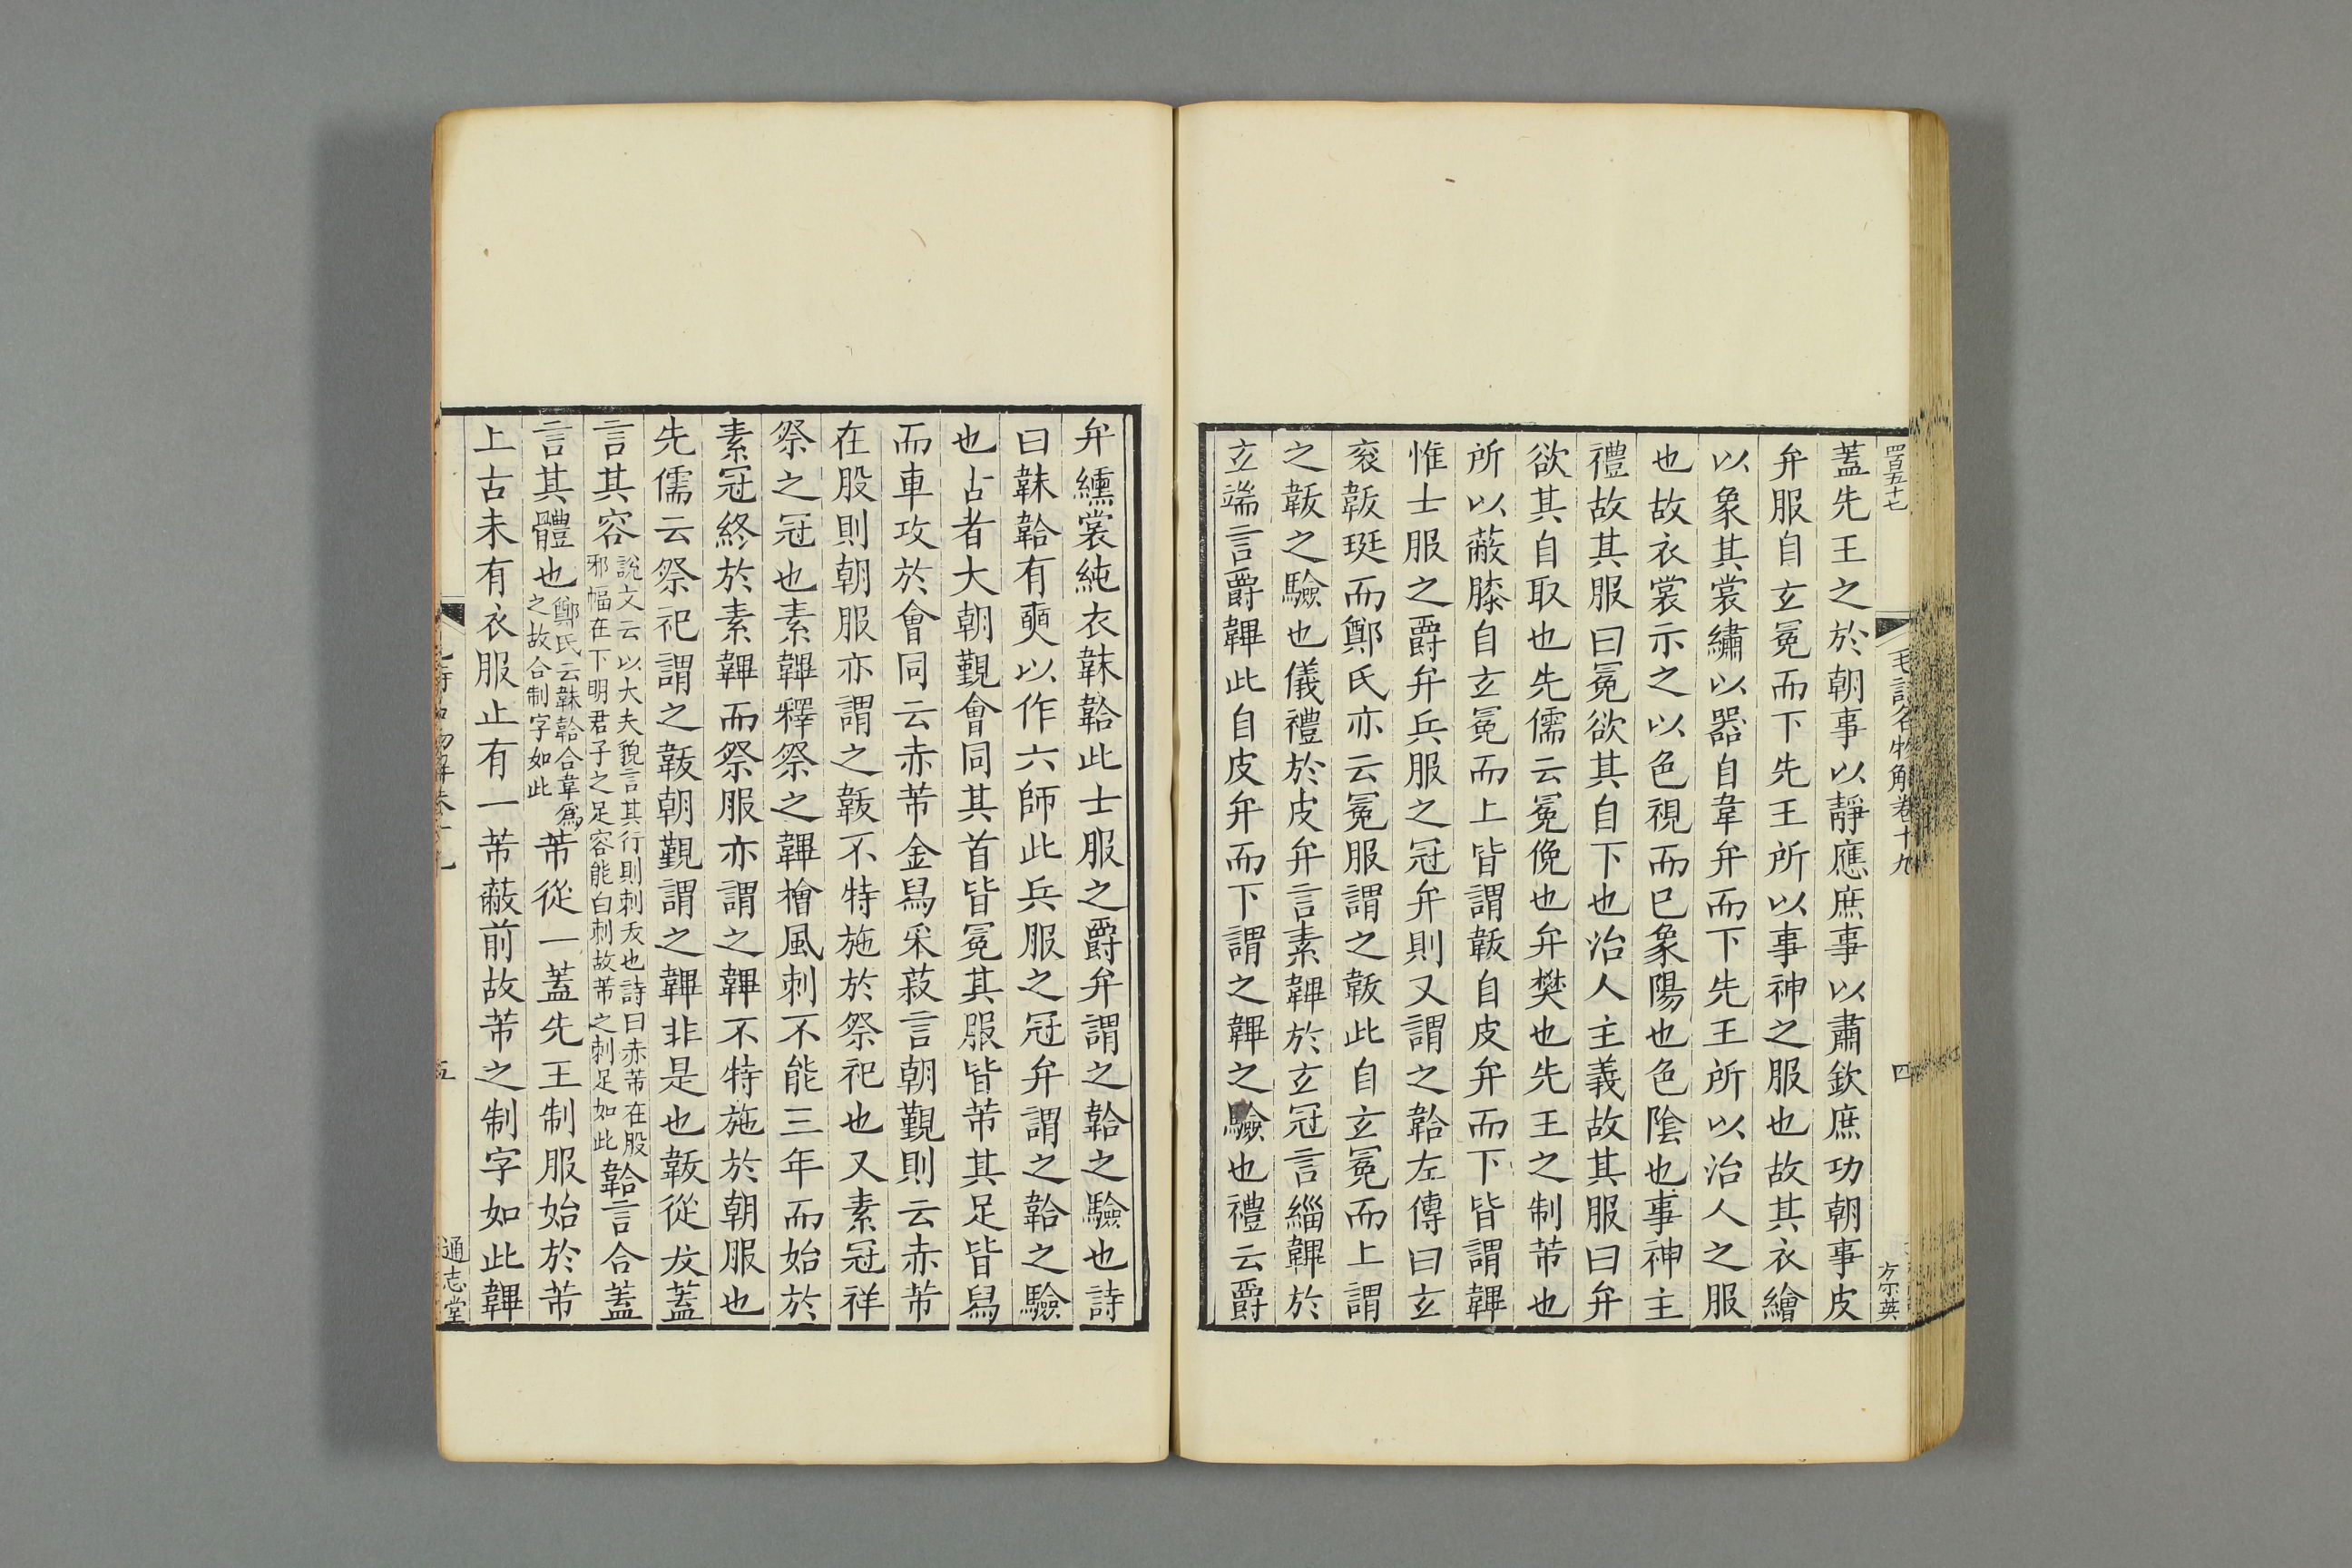 四百五十七
毛詩名物解卷十九
四
方尔英
蓋先王之於朝事以靜應庶事以肅欽庶功朝事皮
弁服自玄冕而下先王所以事神之服也故其衣繪
以象其裳繡以器自韋弁而下先王所以治人之服
也故衣裳示之以色視而已象陽也色陰也事神主
禮故其服曰冕欲其自下也治人主義故其服曰弁
欲其自取也先儒云冕俛也弁樊也先王之制芾也
所以蔽膝自玄冕而上皆謂韍自皮弁而下皆謂韠
惟士服之爵弁兵服之冠弁則又謂之韐左傳曰玄
衮韍珽而鄭氏亦云冕服謂之韍此自玄冕而上謂
之韍之驗也儀禮於皮弁言素韠於玄冠言緇韠於
玄端言爵韠此自皮弁而下謂之韠之驗也禮云爵
弁纁裳純衣韎韐此士服之爵弁謂之韐之驗也詩
曰韎韐有奭以作六師此兵服之冠弁謂之韐之驗
也古者大朝覲會同其首皆冕其服皆芾其足皆舄
而車攻於會同云赤芾金舄采菽言朝覲則云赤芾
在股則朝服亦謂之韍不特施於祭祀也又素冠祥
祭之冠也素韠釋祭之韠檜風刺不能三年而始於
素冠終於素韠而祭服亦謂之韠不特施於朝服也
先儒云祭祀謂之韍朝覲謂之韠非是也韍從犮蓋
言其容說文云以大夫貌言其行則刺犮也詩曰赤芾在股
邪幅在下明君子之足容能白刺故芾之刺足如此韐言合蓋
言其體也鄭氏云韎韐合韋爲
之故合制字如此芾從一蓋先王制服始於芾
上古未有衣服止有一芾蔽前故芾之制字如此韠
五
通志堂